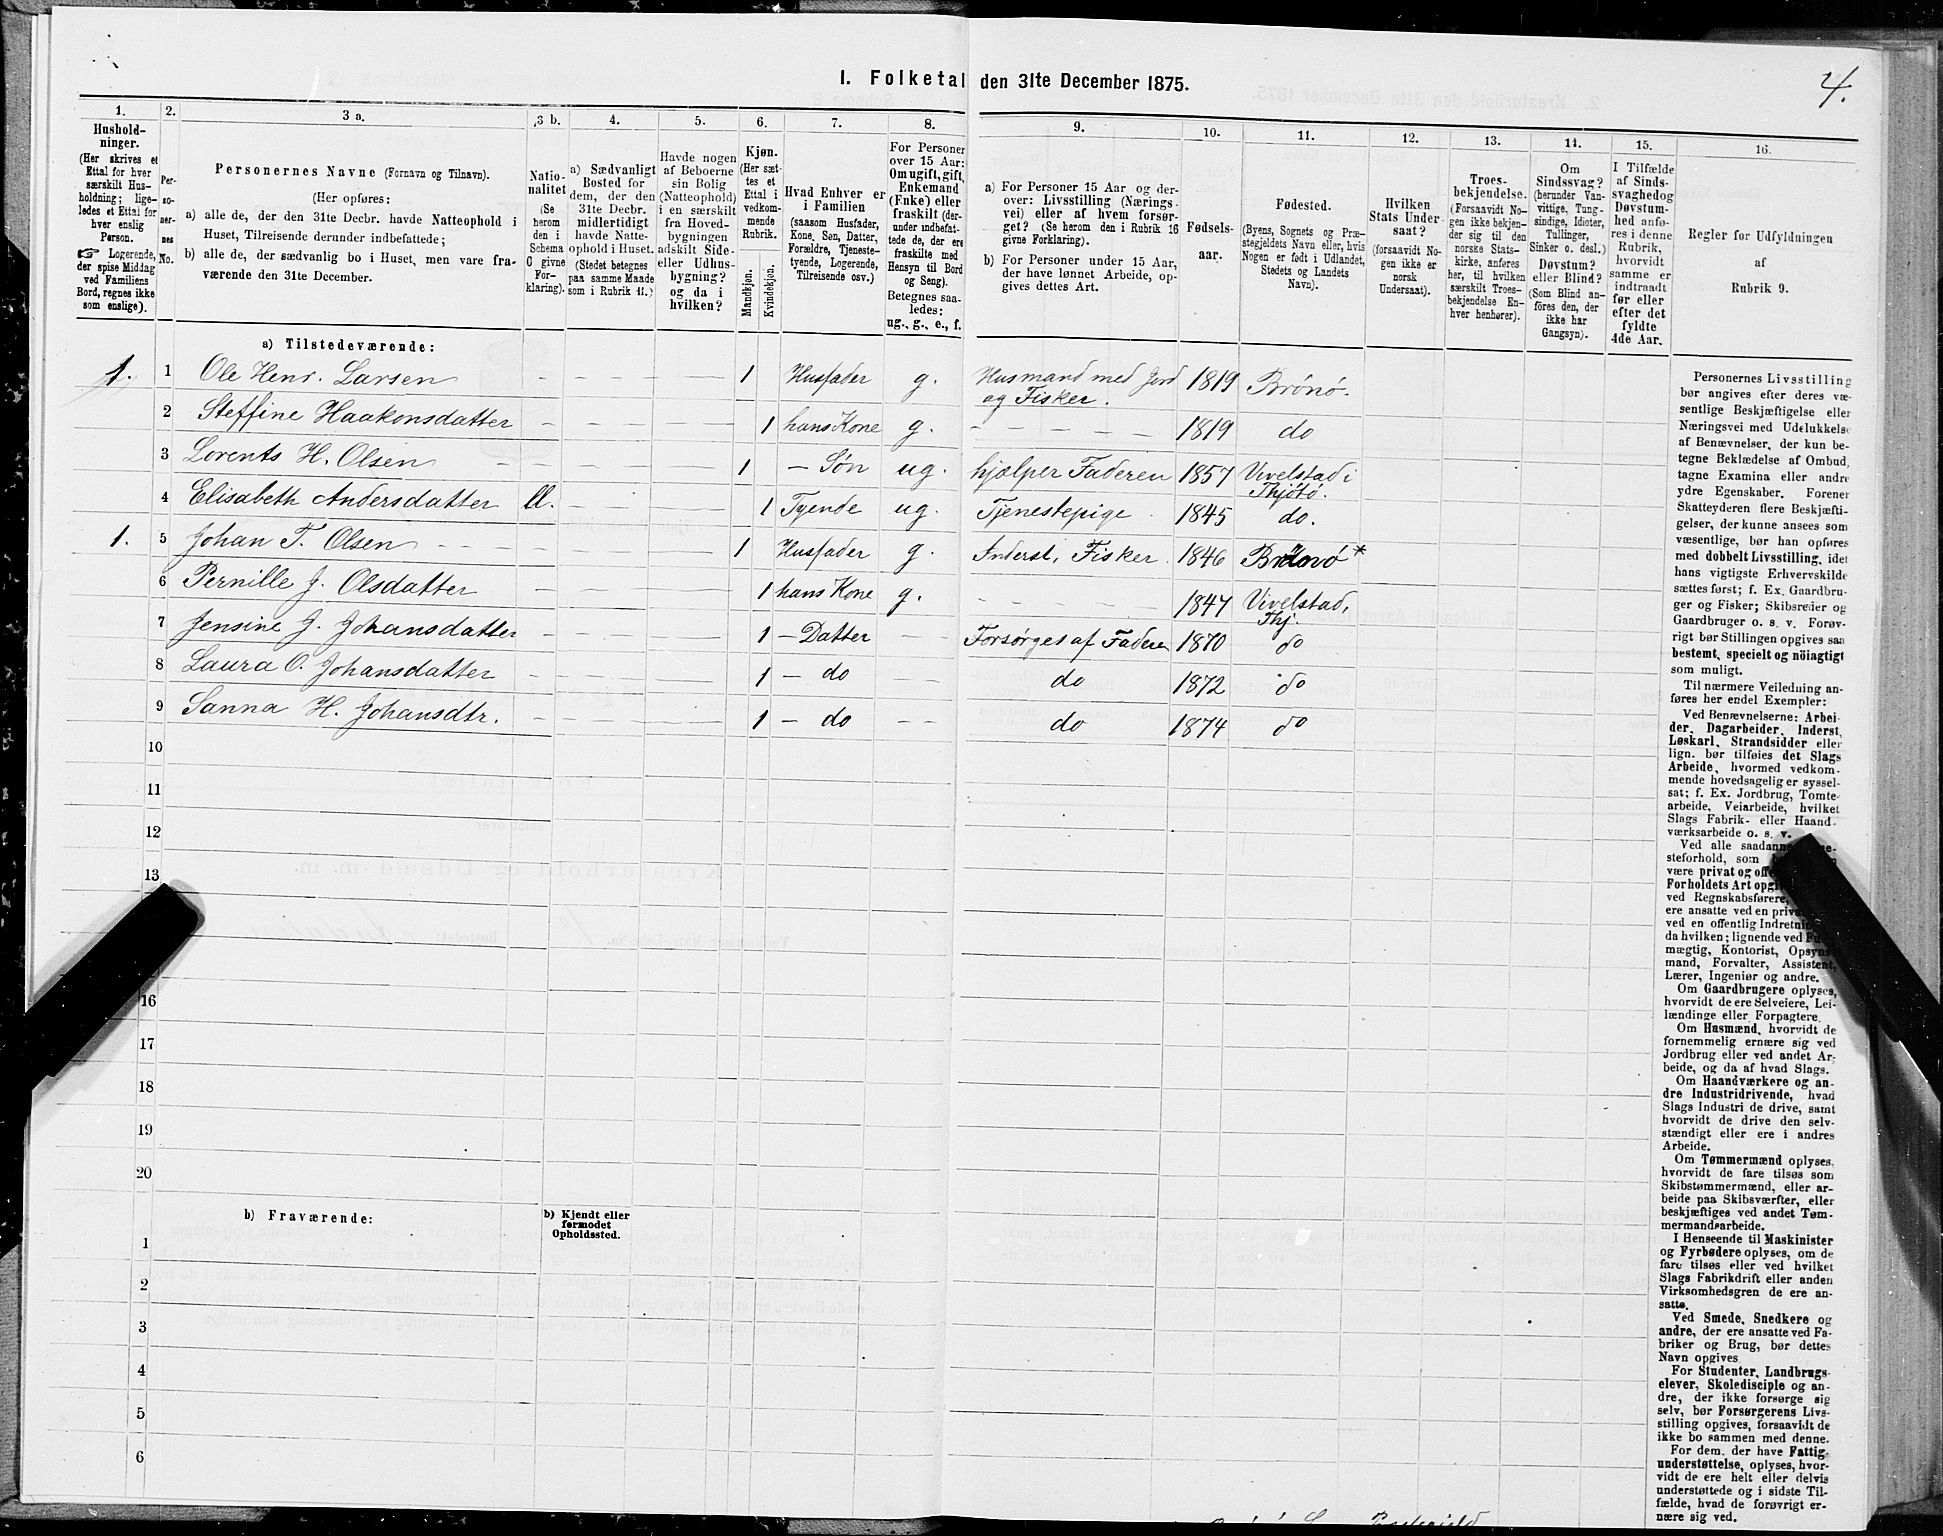 I. Folketal den 31te December 1875.
4.
1.
Hushold-
ninger.
(Her skrives et
Ettal for hver
særskilt Hus-
holdning; lige-
ledes et Ettal for
hver enslig
Person.
☞ Logerende,
der spise Middag
ved Familiens
Bord, regnes ikke
som enslige).
2.
Per-
so-
ner-
nes
No.
3 a.
Personernes Navne (Fornavn og Tilnavn).
(Her opføres:
a) alle de, der den 31te Decbr. havde Natteophold i
Huset, Tilreisende derunder indbefattede;
b) alle de, der sædvanlig bo i Huset, men vare fra-
værende den 31te December.
3 b.
Natio-
nalitet
(Se
herom
den i
Schema
C givne
For-
klaring).
4.
a) Sædvanligt
Bosted for
dem, der den
31te Decbr.
midlertidigt
havde Natte-
ophold i Huset.
(Stedet betegnes
paa samme Maade
som i Rubrik 11.)
5.
Havde nogen
af Beboerne
sin Bolig
(Natteophold)
i en særskilt
fra Hoved-
bygningen
adskilt Side-
eller Udhus-
bygning?
og da i
hvilken?
6.
Kjøn.
(Her sæt-
tes et
Ettal i
vedkom-
mende
Rubrik.
Mandkjøn.
Kvindekjøn.
7.
Hvad Enhver er
i Familien
(saasom Husfader,
Kone, Søn, Datter,
Forældre, Tjeneste-
tyende, Logerende,
Tilreisende osv.)
8.
For Personer
over 15 Aar:
Om ugift, gift,
Enkemand
(Enke) eller
fraskilt (der-
under indbefat-
tede de, der ere
fraskilte med
Hensyn til Bord
og Seng).
Betegnes saa-
ledes:
ug., g., e., f.
9.
a) For Personer 15 Aar og der-
over: Livsstilling (Nærings-
vei) eller af hvem forsør-
get? (Se herom den i Rubrik 16
givne Forklaring).
b) For Personer under 15 Aar,
der have lønnet Arbeide, op-
gives dettes Art.
10.
Fødsels-
aar.
11.
Fødested.
(Byens, Sognets og Præ-
stegjeldets Navn eller, hvis
Nogen er født i Udlandet,
Stedets og Landets
Navn).
12.
Hvilken
Stats Under-
saat?
(forsaavidt No-
gen ikke er
norsk
Undersaat).
13.
Troes-
bekjendelse.
(Forsaavidt No-
gen ikke bekjen-
der sig til den
norske Stats-
kirke, anføres
her, til hvilken
særskilt Troes-
bekjendelse En-
hver henhører).
14.
Om
Sindssvag?
(herunder Van-
vittige, Tung-
sindige, Idioter,
Tullinger,
Sinker o. desl.)
Døvstum?
eller Blind?
(Som Blind an-
føres den, der
ikke har
Gangsyn).
15.
I Tilfælde
af Sinds-
svaghed og
Døvstum-
hed anfø-
res i denne
Rubrik,
hvorvidt
samme er
indtraadt
før eller
efter det
fyldte
4de Aar.
16.
Regler for Udfyldningen
af
Rubrik 9.
a) Tilstedeværende:
1. 1 Ole Henr. Larsen - - - - 1 Husfader g. Husmand med Jord og Fisker. 1819 Brønø.
2 Steffine Haakonsdatter - - - 1 hans Kone g. - - - - 1819 do
3 Lorents H. Olsen - - - - 1 - Søn ug. hjælper Faderen 1857 Vivelstad i Thjøtø.
4 Elisabeth Andersdatter ll. - - 1 Tyende ug. Tjenestepige 1845 do.
1. 5 Johan T. Olsen - - - - 1 Husfader g. Inderst, Fisker. 1846 Brønø *
6 Pernille J. Olsdatter - - - 1 hans Kone g. - - - 1847 Vivelstad, Thj.
7 Jensine J. Johansdatter - - - 1 - Datter - - Forsørges af Faderen 1870 do
8 Laura O. Johansdatter - - - 1 - do do 1872 do
9 Sanna H. Johansdtr. - - - 1 - do - - do 1874 do
10
11
12
13
16
17
18
19
20
b) Fraværende:
b) Kjendt eller
formodet
Opholdssted.
1
2
3
4
5
6
Personernes Livsstilling
bør angives efter deres væ-
sentlige Beskjæftigelse eller
Næringsvei med Udelukkelse
af Benævnelser, der kun be-
tegne Beklædelse af Ombud,
tagne Examina eller andre
ydre Egenskaber. Forener
Skatteyderen flere Beskjæfti-
gelser, der kunne ansees som
væsentlige, bør han opføres
med dobbelt Livsstilling, idet
hans vigtigste Erhvervskilde
sættes først; f. Ex. Gaardbru-
ger og Fisker; Skibsreder og
Gaardbruger o. s. v. Forøv-
rigt bør Stillingen opgives saa
bestemt, specielt og nöiagtigt
som muligt.
Til nærmere Veiledning an-
føres her endel Exempler:
Ved Benævnelserne: Arbei-
der, Dagarbeider, Inderst,
Løskarl, Strandsidder eller
lign. bør tilføies det Slags
Arbeide, hvormed vedkom-
mende hovedsagelig er syssel-
sat; f. Ex. Jordbrug, Tomte-
arbeide, Veiarbeide, hvilket
Slags Fabrik- eller Haand-
værksarbeide o. s. v.
Ved alle saadanne
steforhold, som
være privat og
Forholdets Art
ved Regnskabsførere,
ere ansatte ved en
ved en offentlig Indretning
da hvilken; lignende ved
mægtig, Kontorist, Opsyns-
mand, Forvalter, Assistent,
Lærer, Ingeniør og andre.
Om Gaardbrugere oplyses,
hvorvidt de ere Selveiere, Lei-
lændinge eller Forpagtere.
Om Husmænd, hvorvidt de
fornemmelig ernære sig ved
Jordbrug eller ved andet Ar-
beide, og da af hvad Slags.
Om Haandværkere og an-
dre Industridrivende, hvad
Slags Industri de drive, samt
hvorvidt de drive den selv-
stændigt eller ere i andres
Arbeide.
Om Tømmermænd oplyses,
hvorvidt de fare tilsøs som
Skibstømmermænd, eller ar-
beide paa Skibsværfter, eller
beskjæftiges ved andet Tøm-
mermandsarbeide.
I Henseende til Maskinister
og Fyrbødere oplyses, om de
fare tilsøs eller ved hvilket
Slags Fabrikdrift eller anden
Virksomhedsgren de ere an-
satte.
Ved Smede, Snedkere og
andre, der ere ansatte ved Fa-
briker og Brug, bør dettes
Navn opgives.
For Studenter, Landbrugs-
elever, Skoledisciple og an-
dre, der ikke forsørge sig
selv, bør Forsørgerens Livs-
stilling opgives, forsaavidt de
ikke bo sammen med denne.
For dem, der have Fattig-
understøttelse, oplyses, hvor-
vidt de ere helt eller delvis
understøttede og i sidste Til-
fælde, hvad de forøvrigt er-
nære sig ved.